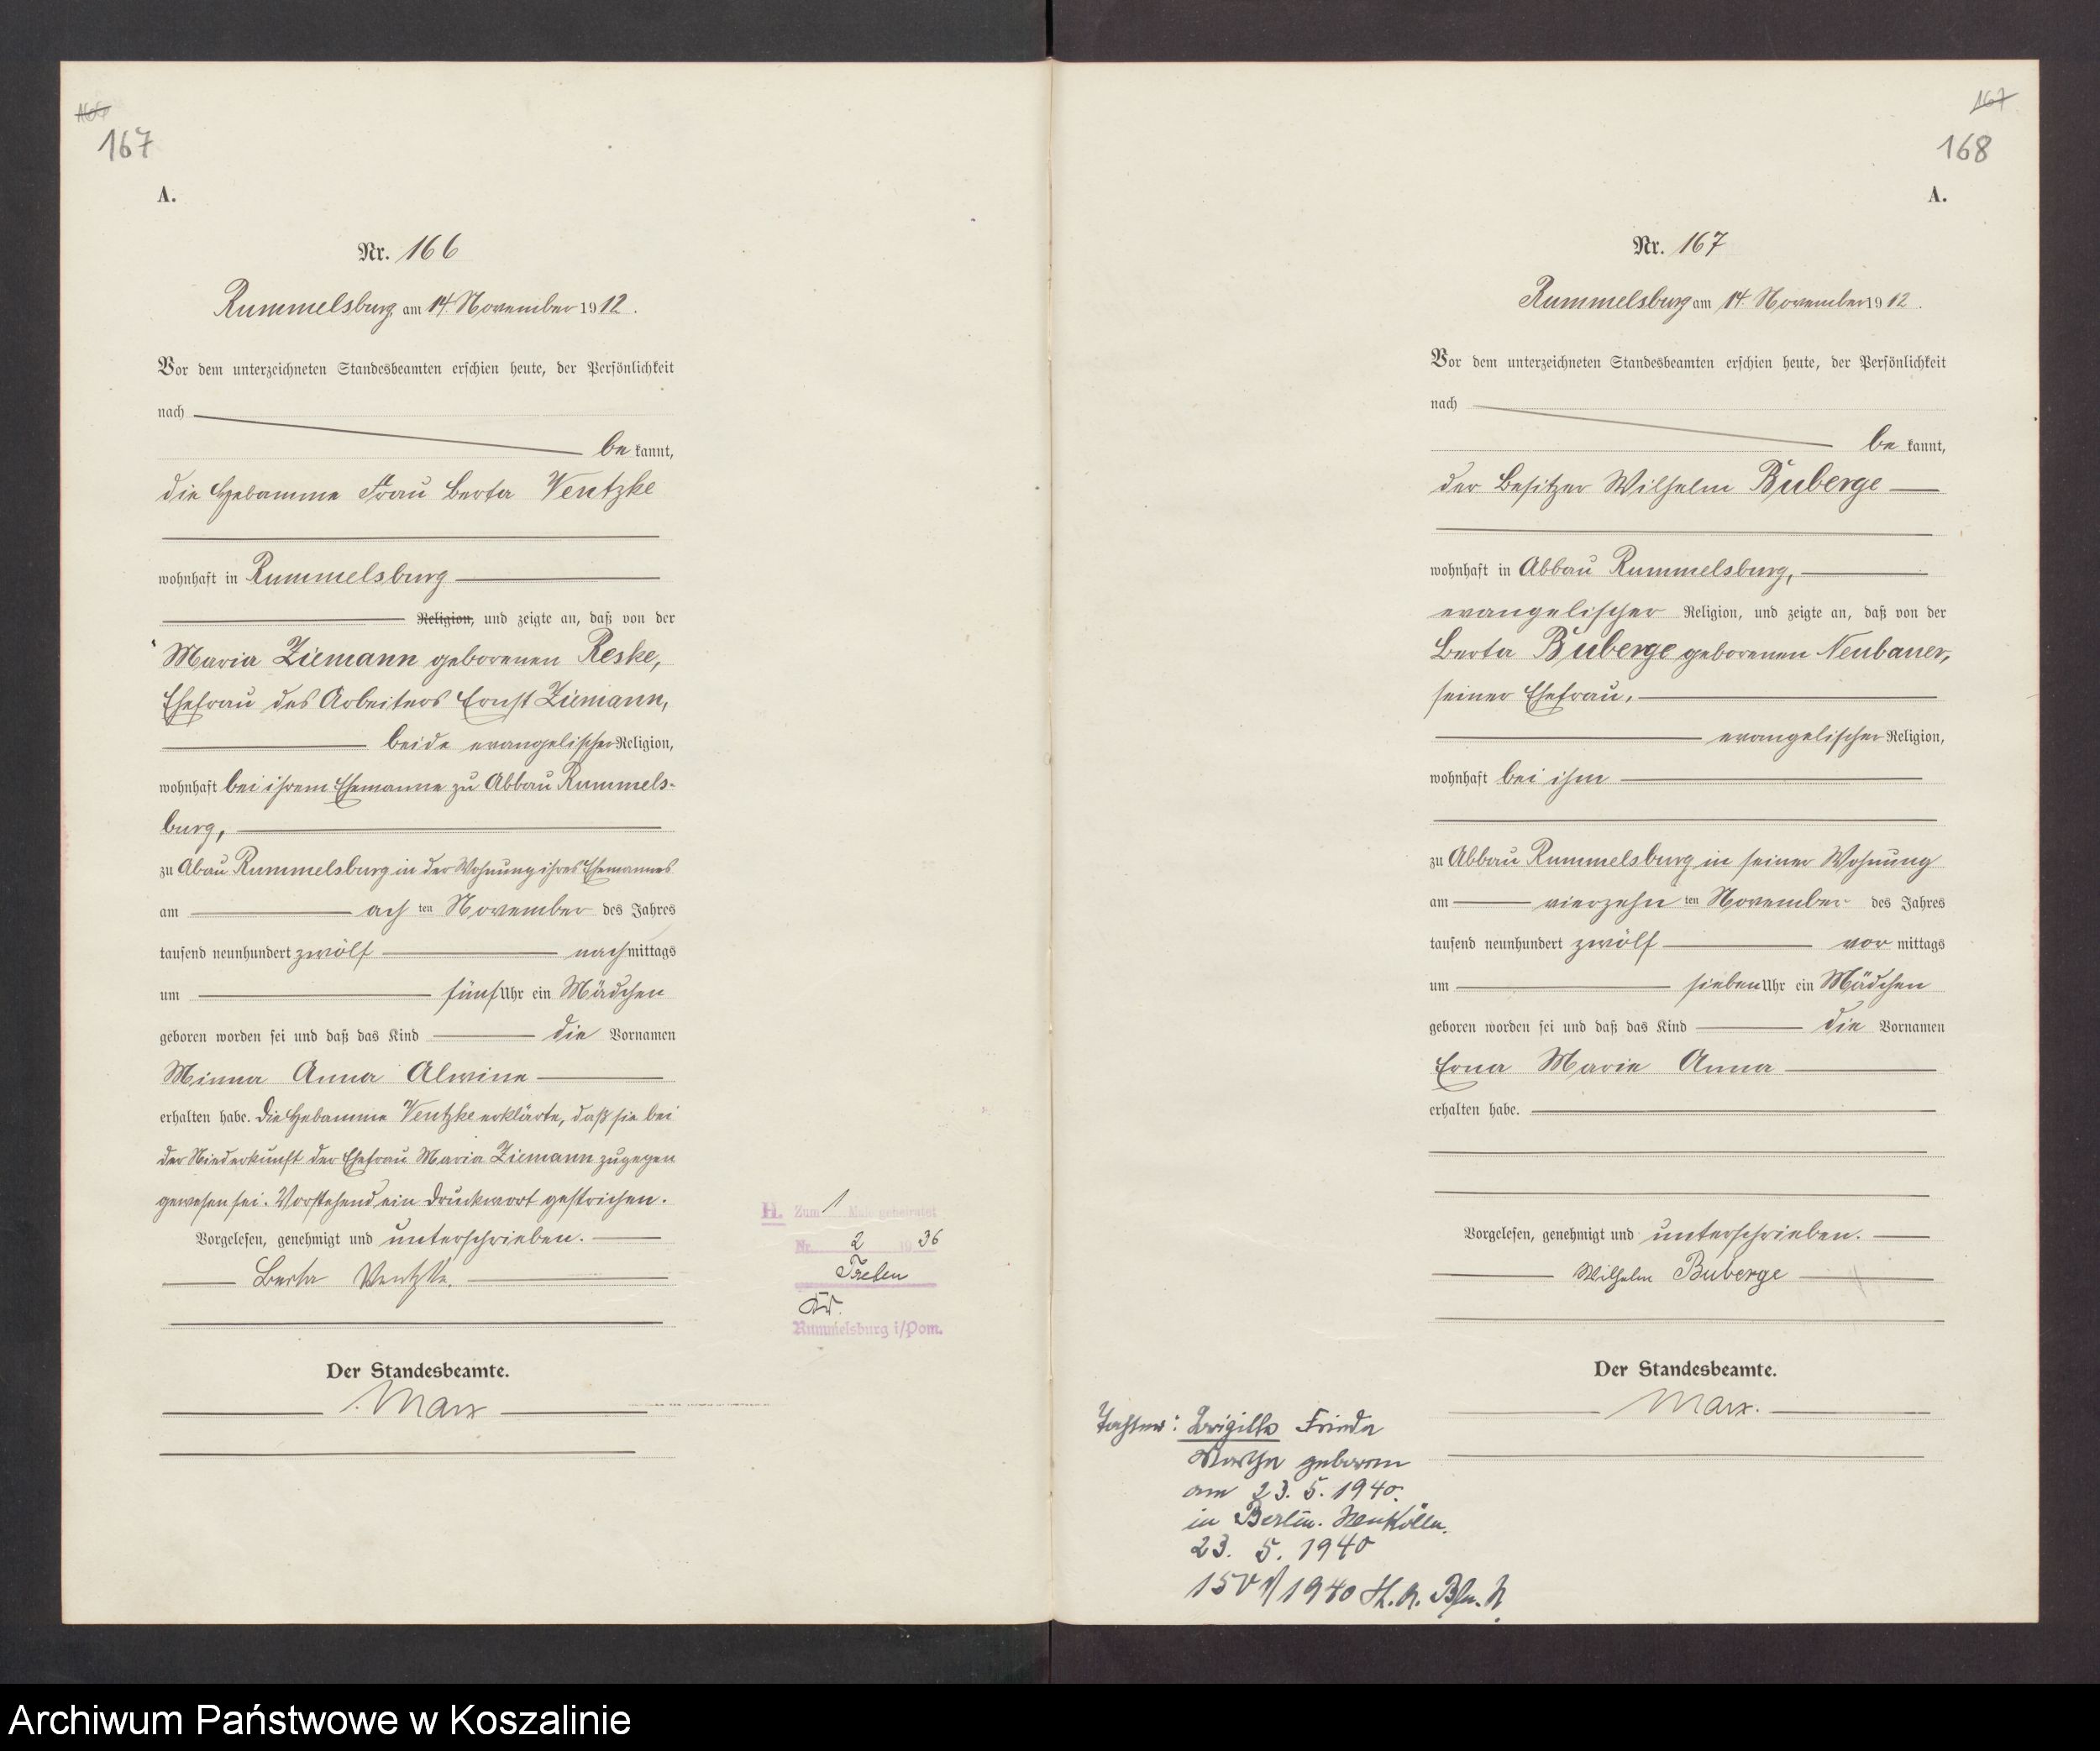 166
167
A.
Nr. 166
Rummelsburg am 14. November 1912.
Vor dem unterzeichneten Standesbeamten erschien heute, der Persönlichkeit
nach
be kannt,
die Hebamme Frau Berta Ventzke
wohnhaft in Rummelsburg
Religion, und zeigte an, daß von der
Maria Ziemann geborenen Reske,
Ehefrau des Arbeiters Ernst Ziemann,
beide evangelischer Religion,
wohnhaft bei ihrem Ehemanne zu Abbau Rummels-
burg,
zu Abau Rummelsburg in der Wohnung ihres Ehemannes
am ach ten November des Jahres
tausend neunhundert zwölf nach mittags
um fünf Uhr ein Mädchen
geboren worden sei und daß das Kind die Vornamen
Minna Anna Alwine
erhalten habe. Die Hebamme Ventzke erklärte, daß sie bei
der Niederkunft der Ehefrau Maria Ziemann zugegen
gewesen sei. Vorstehend ein Druckwort gestrichen.
Vorgelesen, genehmigt und unterschrieben.
Berta Ventzke.
Der Standesbeamte.
Marx
H. Zum 1 Male geheiratet
Nr. 2 1936
Treten
Rummelsburg i/Pom.
167
168
A.
Nr. 167
Rummelsburg am 14. November 1912.
Vor dem unterzeichneten Standesbeamten erschien heute, der Persönlichkeit
nach
be kannt,
der Besitzer Wilhelm Buberge
wohnhaft in Abbau Rummelsburg,
evangelischer Religion, und zeigte an, daß von der
Berta Buberge geborenen Neubauer,
seiner Ehefrau,
evangelischer Religion,
wohnhaft bei ihm
zu Abbau Rummelsburg in seiner Wohnung
am vierzehn ten November des Jahres
tausend neunhundert zwölf vor mittags
um sieben Uhr ein Mädchen
geboren worden sei und daß das Kind die Vornamen
Erna Marie Anna
erhalten habe.
Vorgelesen, genehmigt und unterschrieben.
Wilhelm Buberge
Der Standesbeamte.
Marx.
Tochter: Brigitte Frieda
Martha geboren
am 23. 5. 1940.
in Berlin-Neukölln.
23. 5. 1940
1940 St. A. Bln. N.
Archiwum Państwowe w Koszalinie